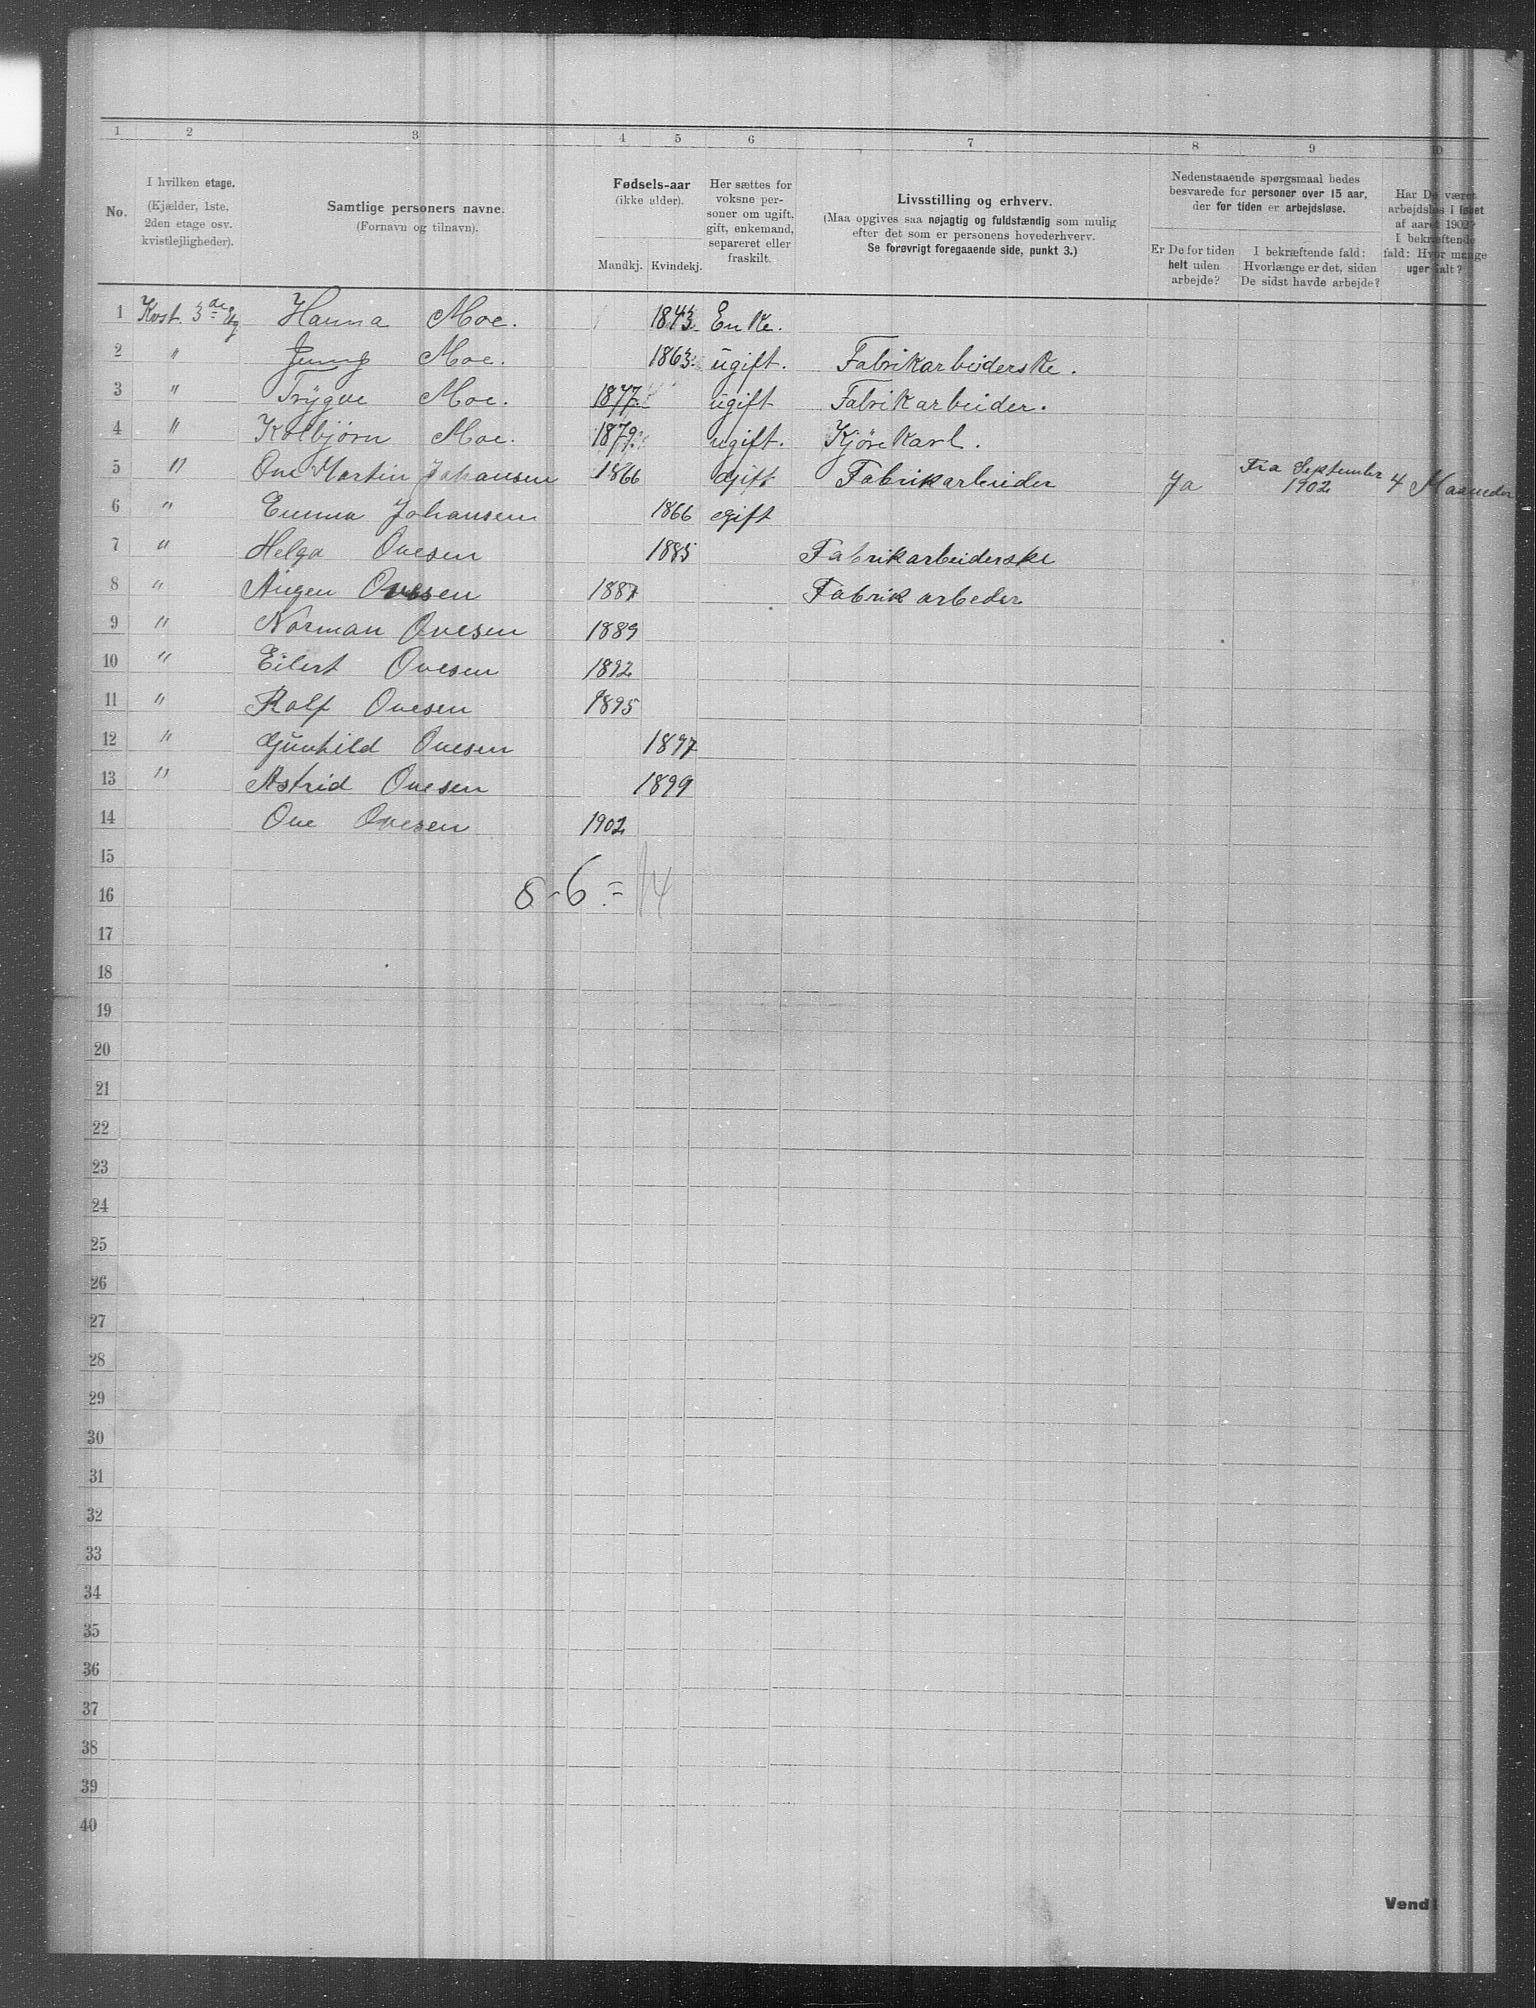 1 2 3 4 5 6 7 8 9 10
No.
I hvilken etage.
(Kjælder, 1ste,
2den etage osv.
kvistlejligheder).
Samtlige personers navne.
(Fornavn og tilnavn).
Fødsels-aar
(ikke alder).
Mandkj. Kvindekj.
Her sættes for
voksne per-
soner om ugift,
gift, enkemand,
separeret eller
fraskilt.
Livsstilling og erhverv.
(Maa opgives saa nøjagtig og fuldstændig som mulig
efter det som er personens hovederhverv.
Se forøvrigt foregaaende side, punkt 3.)
Nedenstaaende spørgsmaal bedes
besvarede for personer over 15 aar,
der for tiden er arbejdsløse.
Er De for tiden
helt uden
arbejde?
I bekræftende fald:
Hvorlænge er det, siden
De sidst havde arbejde?
Har De været
arbejdsløs i løbet
af aaret 1902?
I bekræftende
fald: Hvor mange
uger ialt?
1 Kvst. 3a Eg Hanna Moe. 1843 Enke.
2 " Jenny Moe. 1863 ugift. Fabrikarbeiderske.
3 " Trygve Moe. 1877 ugift Fabrikarbeider.
4 " Kolbjørn Moe. 1879 ugift. Kjørekarl.
5 " Ove Martin Johansen 1866 gift Fabrikarbeider Ja Fra September 1902 4 Maaneder
6 " Emma Johansen 1866 gift
7 " Helga Ovesen 1885 Fabrikarbeiderske
8 " Augen Ovesen 1887 Fabrik arbeder
9 " Norman Ovesen 1889
10 " Eilert Ovesen 1892
11 " Ralf Ovesen 1895
12 " Gunhild Ovesen 1897
13 " Astrid Ovesen 1899
14 Ove Ovesen 1902
15
16 8-6=14
17
18
19
20
21
22
23
24
25
26
27
28
29
30
31
32
33
34
35
36
37
38
39
40
Vend!